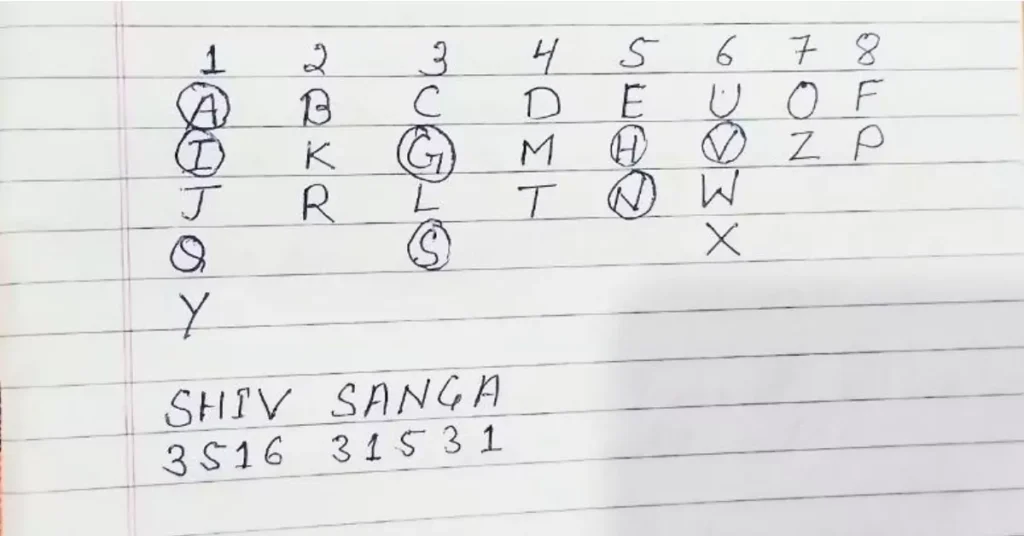 1 2 3 4 5 6 7 8
A B C D E U O F
I K G M H V Z P
J R L T N W
Q S X
Y
SHIV SANGA
3516 31531